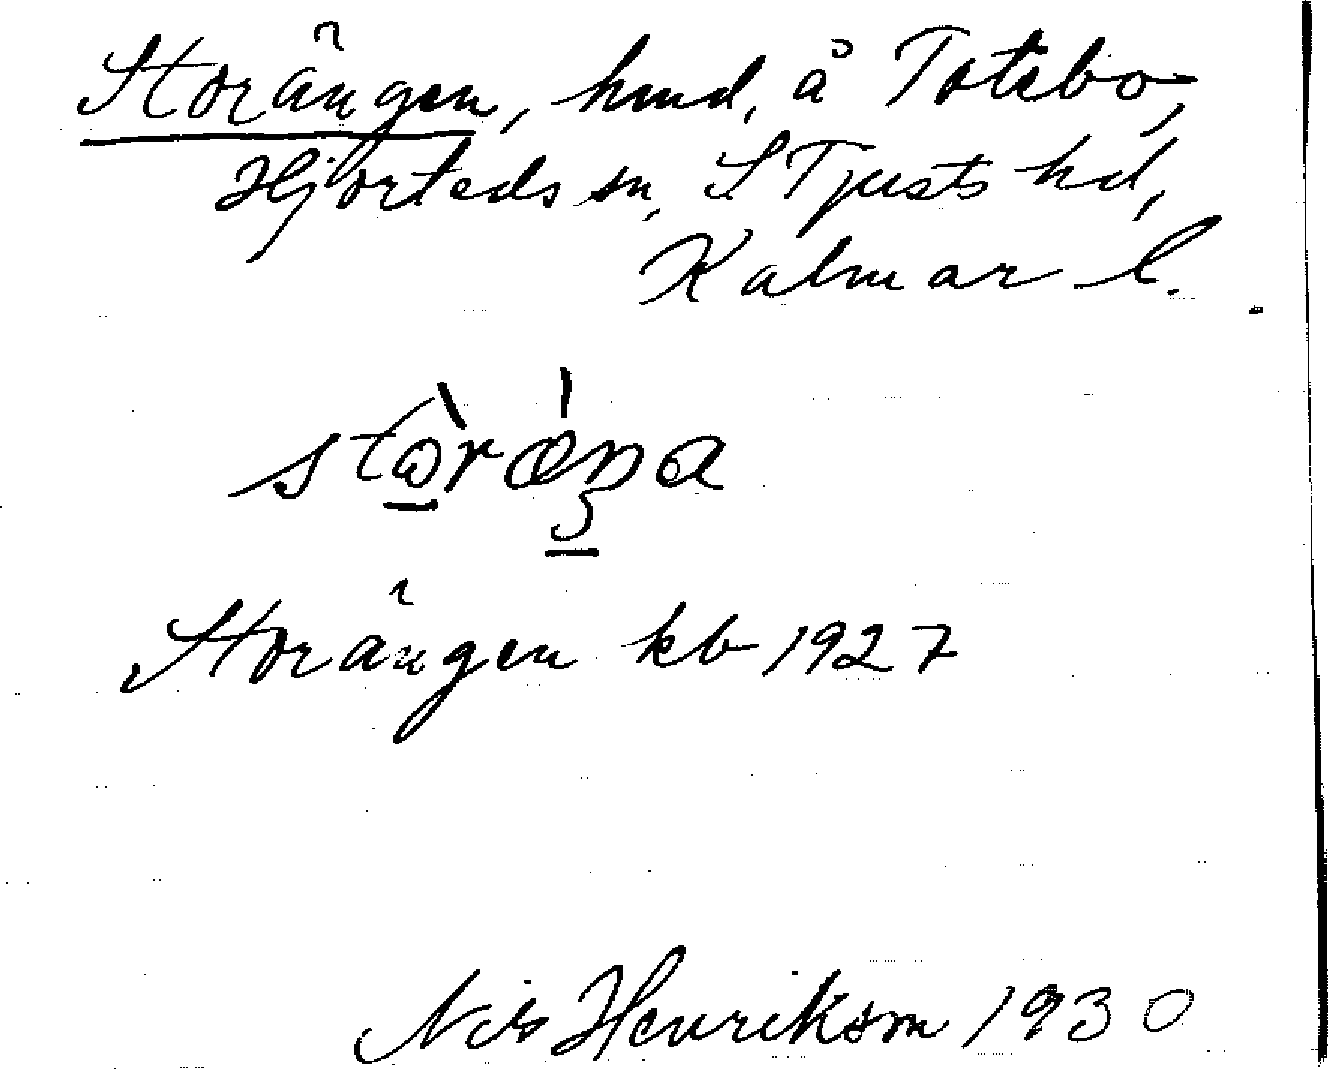 Storängen, hmd. å Totebo,
Hjorteds sn, S Tjusts hd,
Kalmar l.
Storängen kb 1927
Nils Henriksson 1930